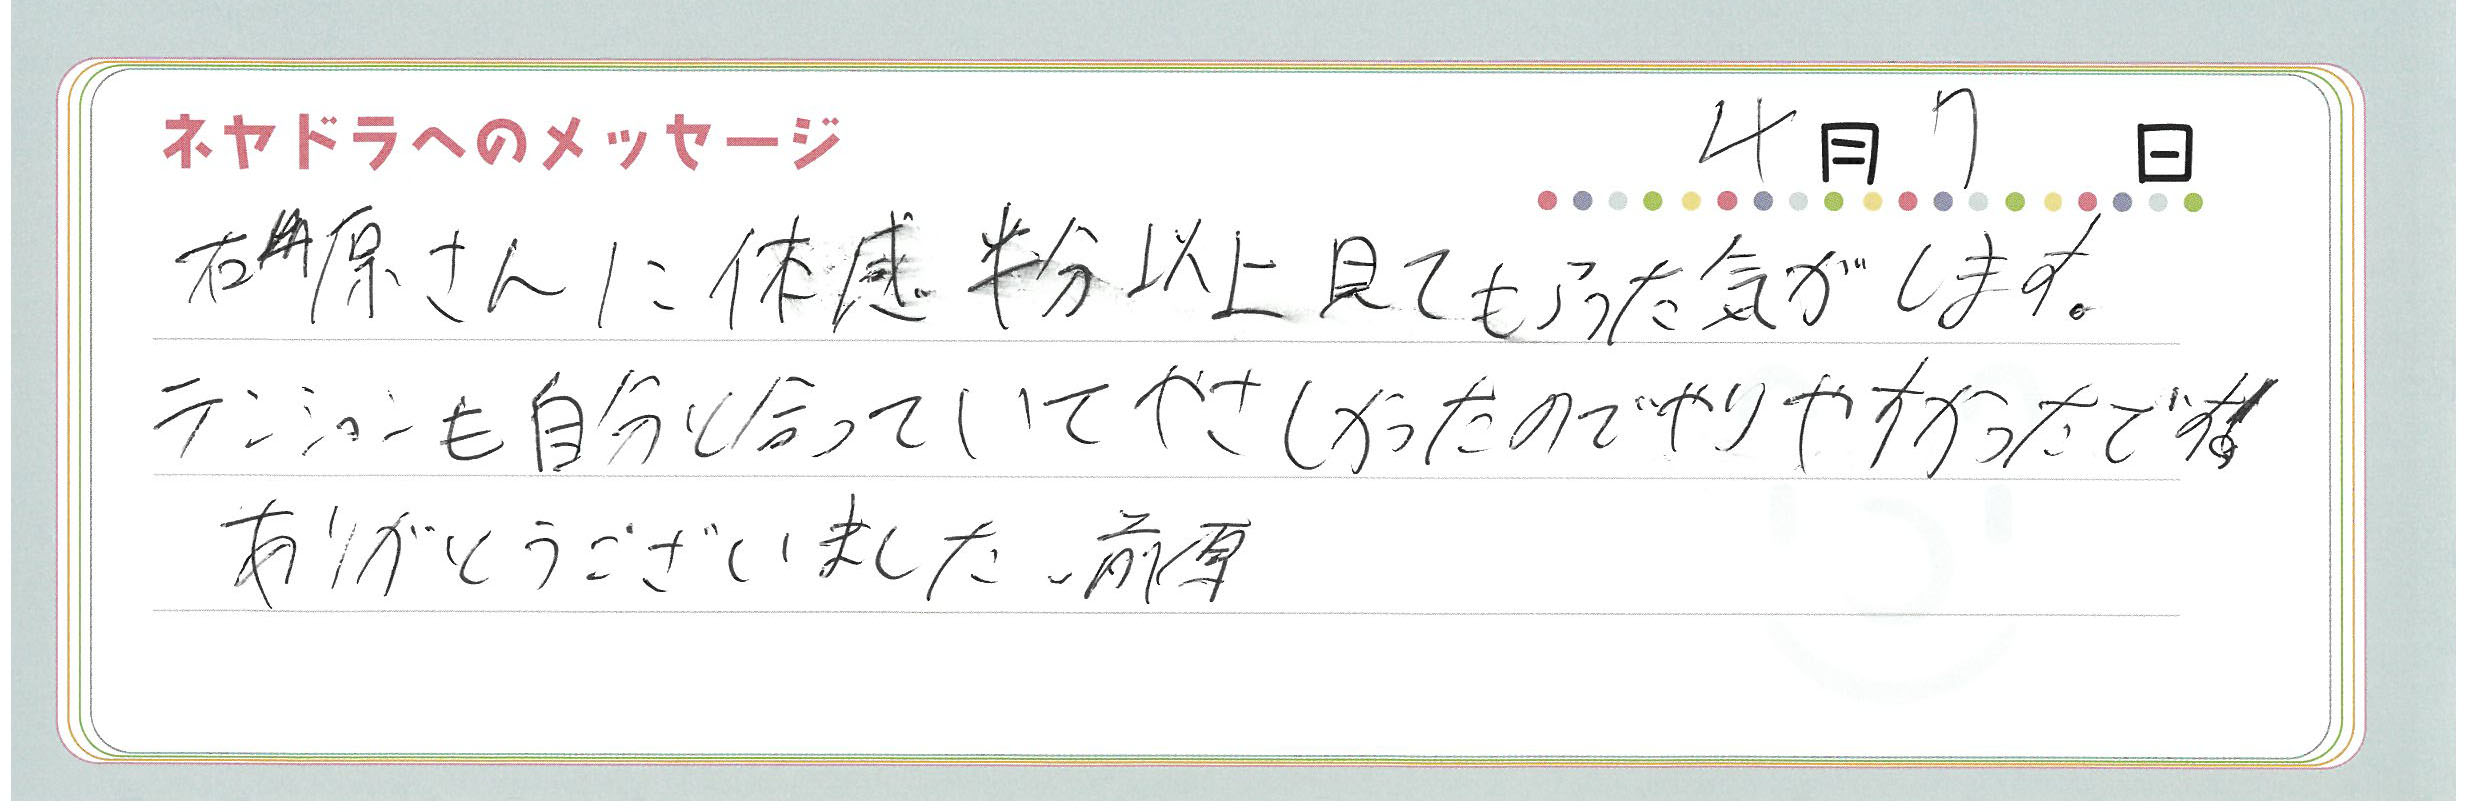 ネヤドラへのメッセージ
4月7日
原さんに体感半分以上見てもらった気がします。
テンションも自分と合っていてやさしかったのでやりやすかったです。
ありがとうございました、前原